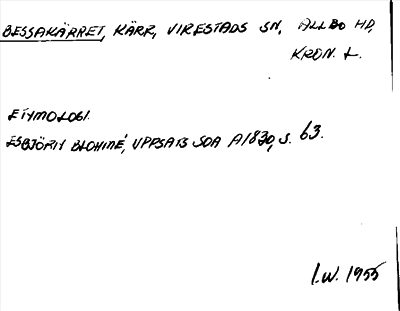 BESSAKÄRRET, KÄRR, VIRESTADS SN, ALLBO HD,
KRON. L.
ETYMOLOGI.
ESBJÖRN BLOHMÉ, UPPSATS SOA A1830, S. 63.
I.W. 1955